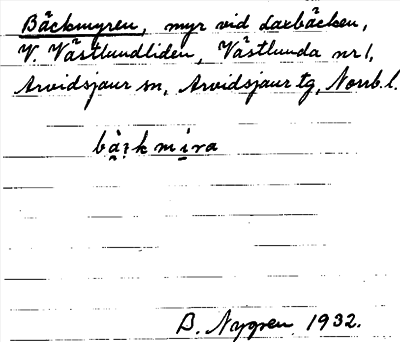 Bäckmyren, myr vid Laxbäcken,
V. Västlundliden, Västlunda nr 1,
Arvidsjaur sn, Arvidsjaur tg, Norrb. l.
B. Nygren 1932.